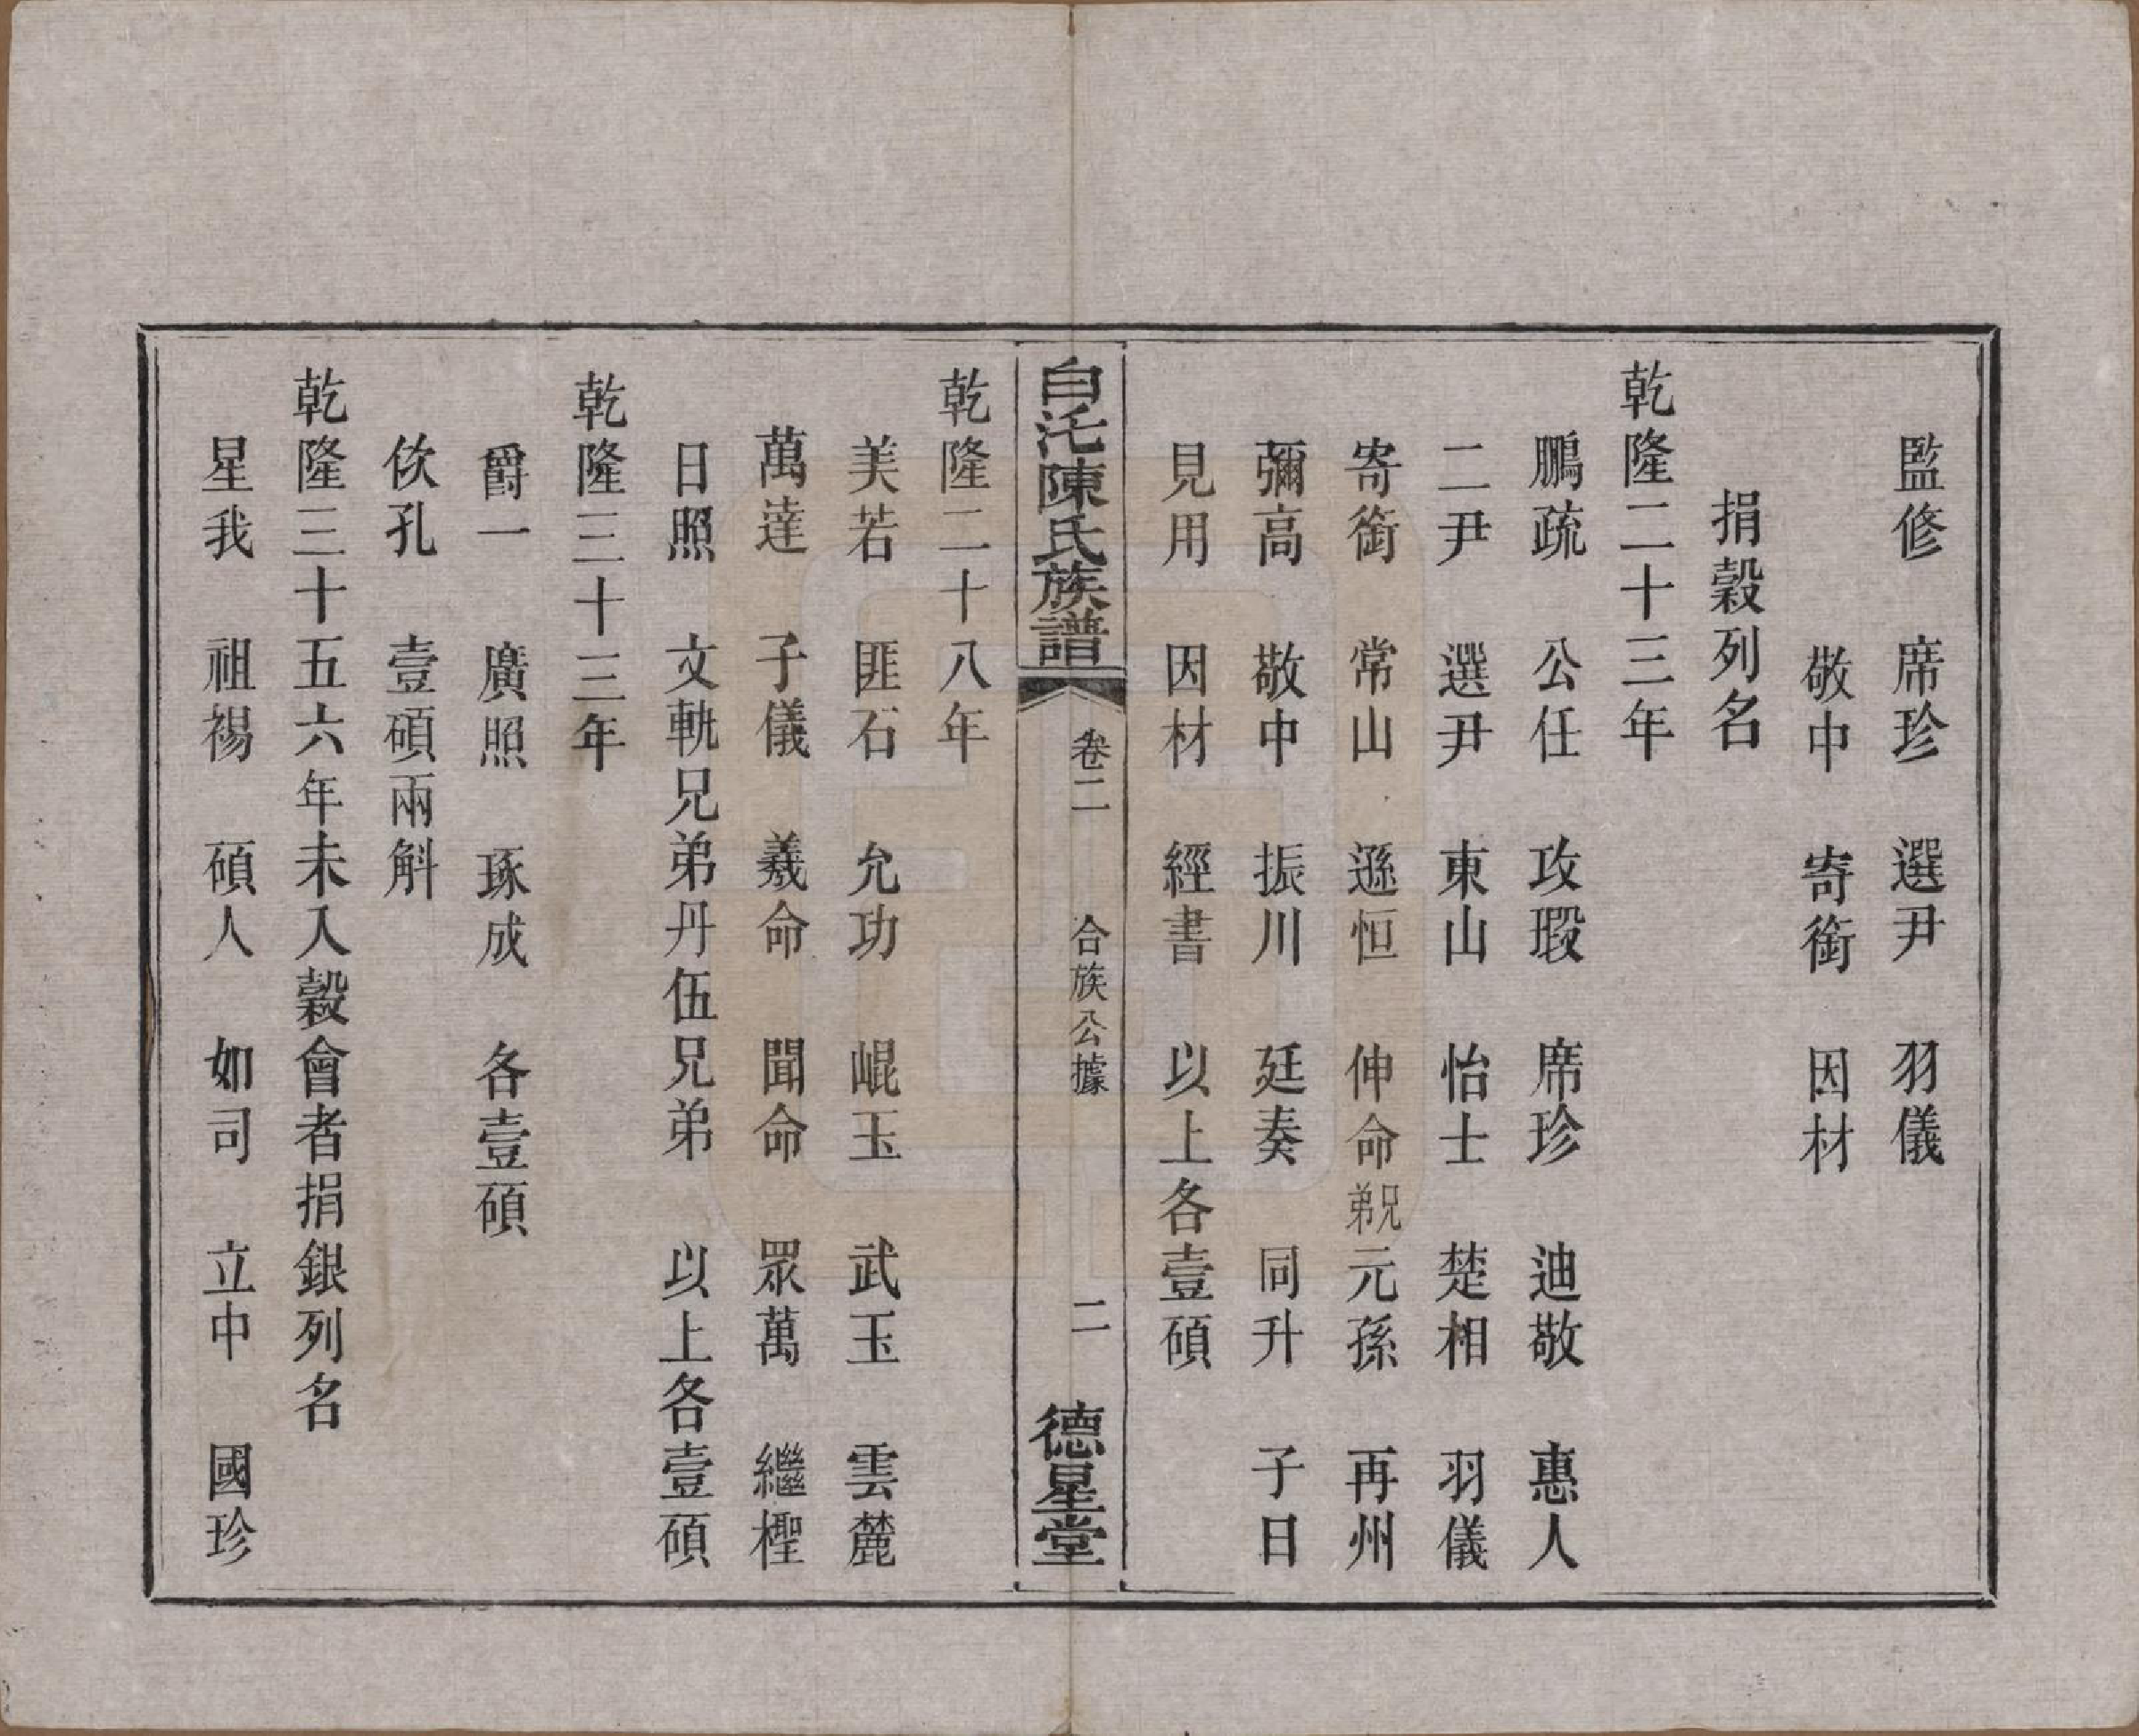 監修　席珍　選尹　羽儀
敬中　寄衡　因材
捐穀列名
乾隆二十三年
鵬疏　公任　攻瑕　席珍　迪敬　惠人
二尹　選尹　東山　怡士　楚相　羽儀
寄衡　常山　遜恒　伸命兄弟元孫　再州
彌高　敬中　振川　廷奏　同升　子日
見用　因材　經書　以上各壹碩
白沱陳氏族譜　卷二　合族公據　二　德星堂
乾隆二十八年
美若　匪石　允功　崐玉　武玉　雲麓
萬達　子儀　羲命　聞命　眾萬　繼檉
日照　文軌兄弟丹伍兄弟　以上各壹碩
乾隆三十三年
爵一　廣照　琢成　各壹碩
佽孔　壹碩兩斛
乾隆三十五六年未入穀會者捐銀列名
星我　祖裼　碩人　如司　立中　國珍